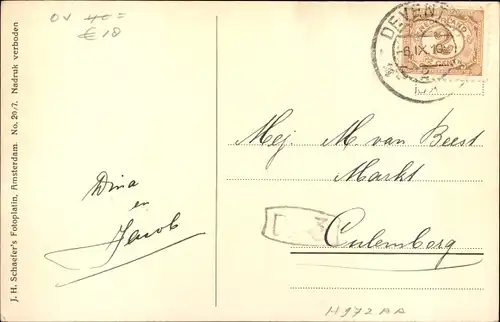 J. H. Schaefer's Fotoplatin, Amsterdam. No. 29/7. Nadruk verboden
OV 40=
€18
DEVENT
NEDERLAND
CENT
Mej. M. van Beest
Markt
Culemborg
Dina
en
Jacob
H972AA